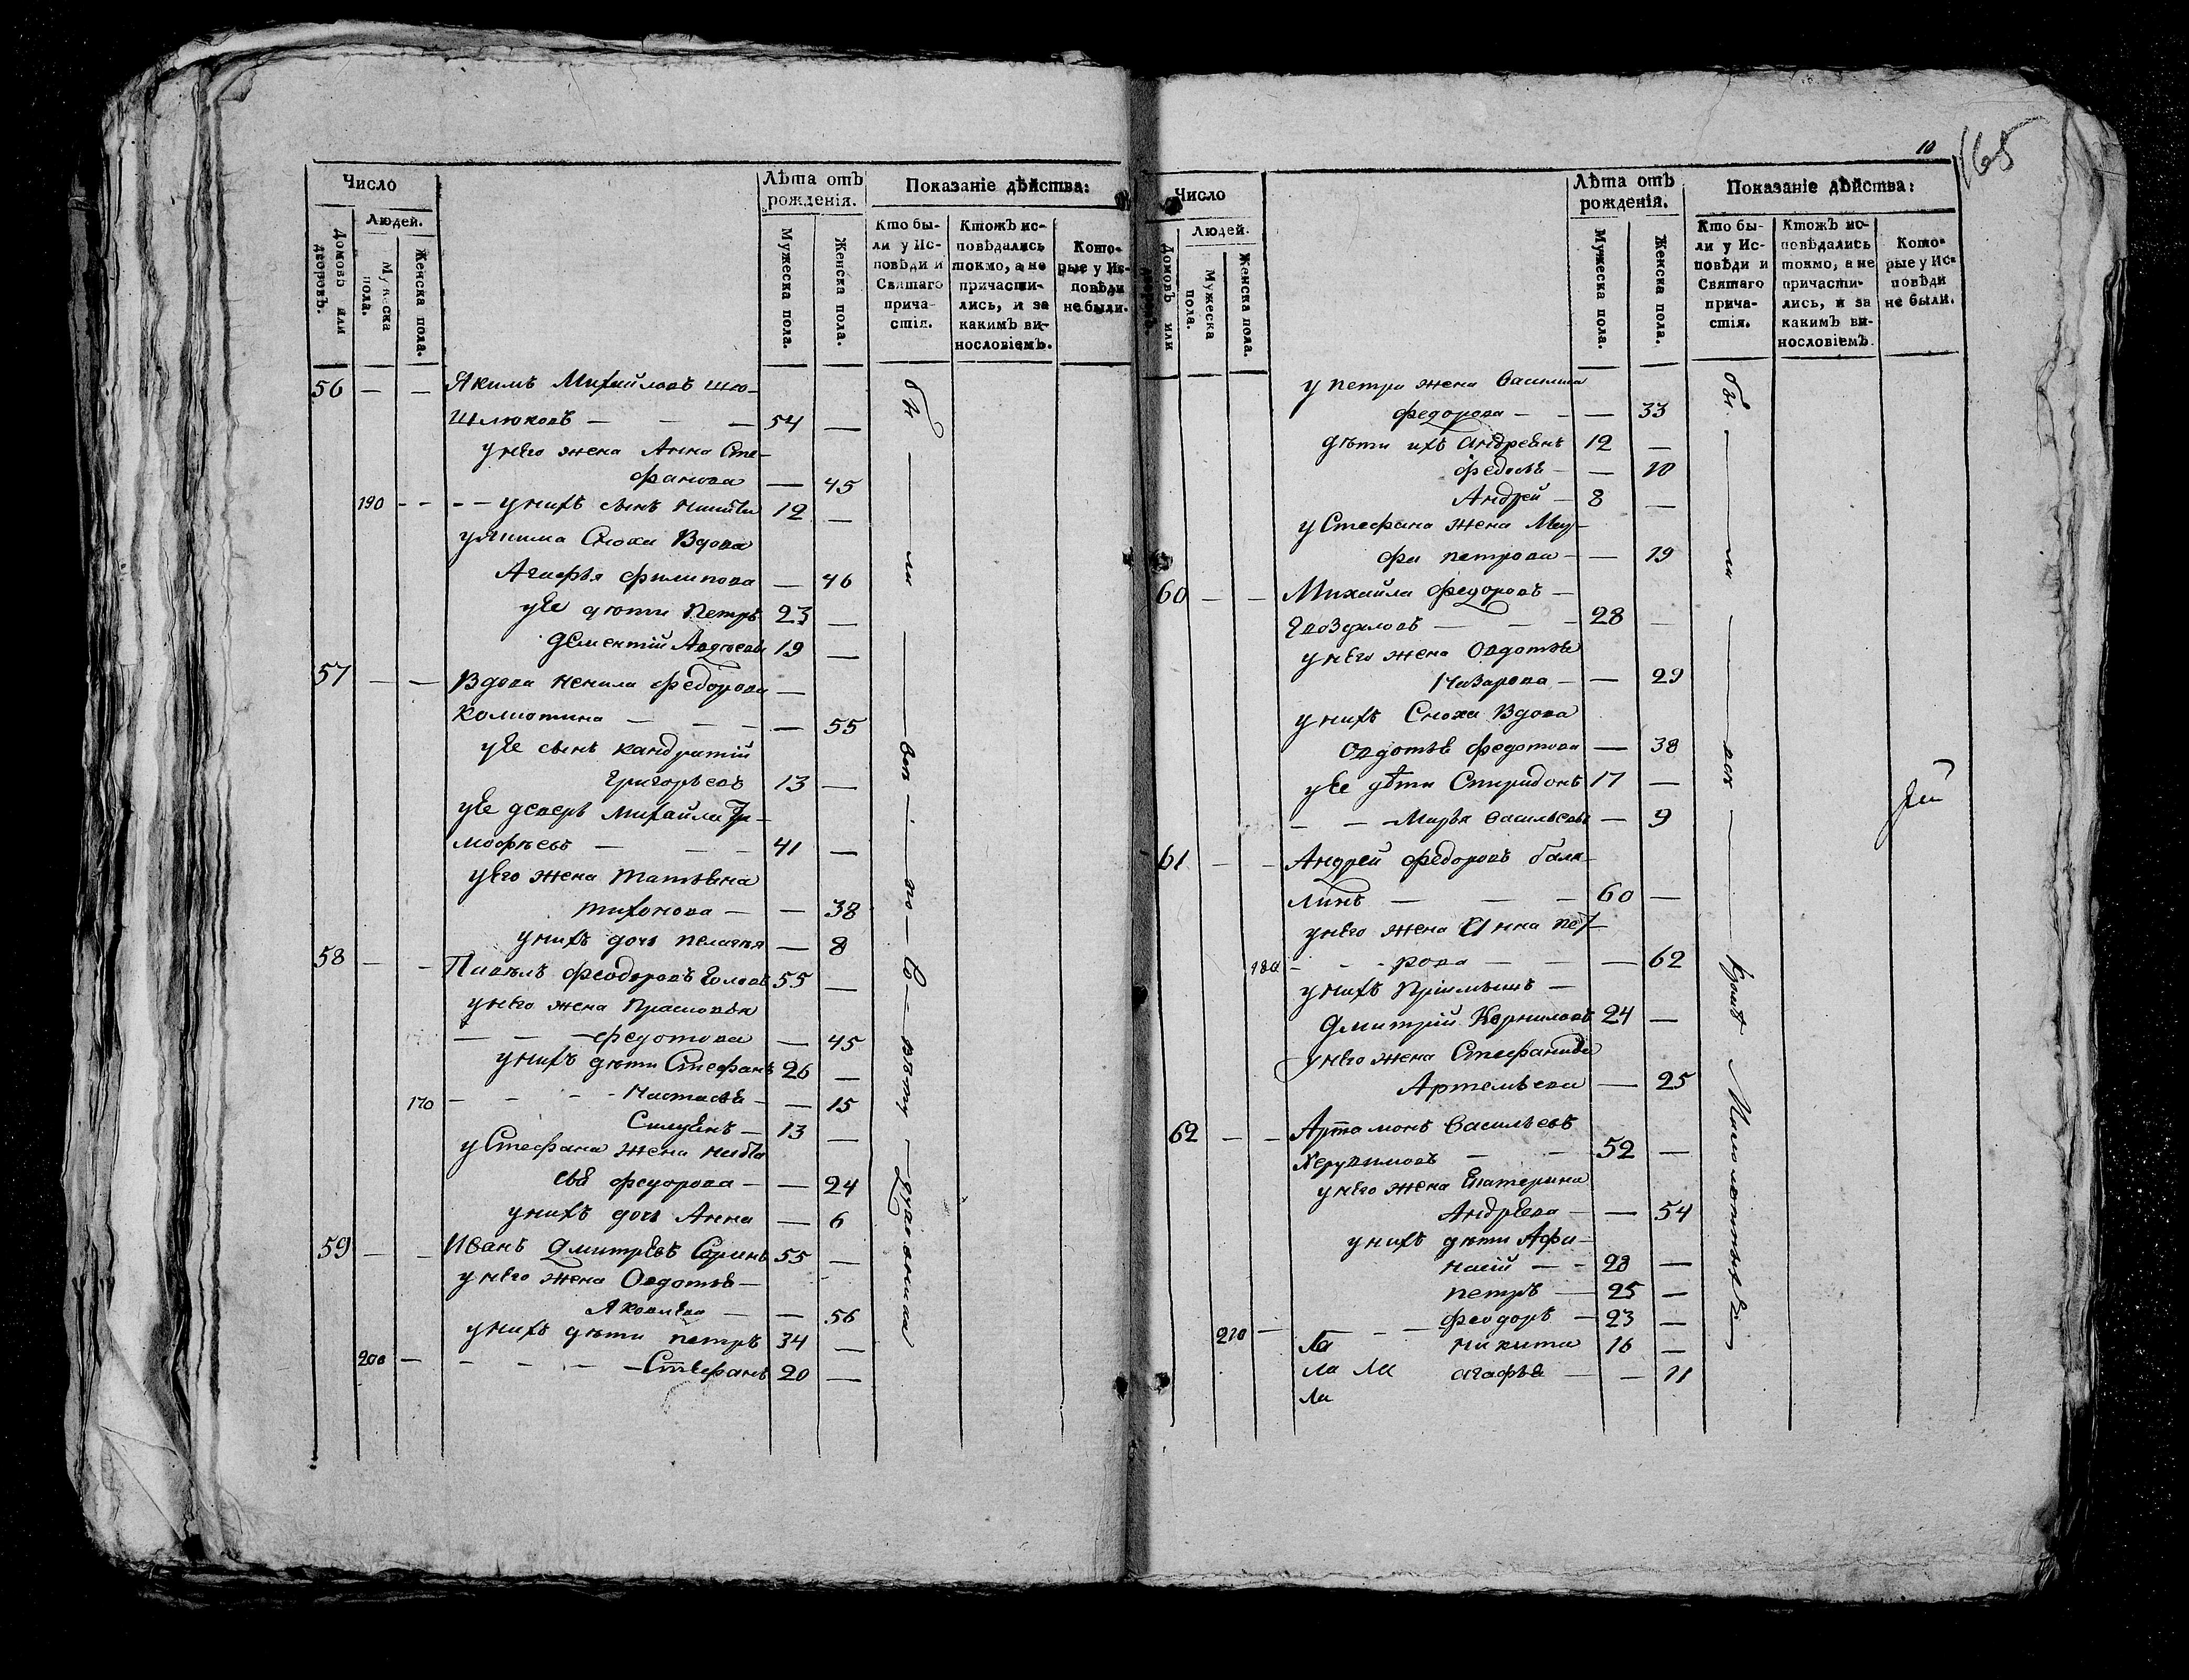 10
165
Число
Лѣта отъ рожденія.
Показаніе дѣйства:
Людей.
Домовъ или дворовъ.
Мужеска пола.
Женска пола.
Мужеска пола.
Женска пола.
Кто были у Исповѣди и Святаго причастія.
Ктожъ исповѣдались токмо, а не причастились, и за какимъ винословіемъ.
Которые у Исповѣди не были.
56 — — Якимъ Михайловъ шю-
шлюковъ — — — 54 —
у него жена Анна Сте-
фанова — 45
190 - - - - у нихъ сынъ 12 —
у Якима Сноха Вдова
Агафья филипова — 46
у Ее дѣти петръ 23 —
Дементій Авдѣевы 19 —
57 — — Вдова Ненила федорова —
Колиотина — — — — 55
у Ее сынъ кандратій
григорьевъ 13 —
у Ее деверь Михайла Ти-
мофѣевъ — — — 41 —
у Его жена татьяна
тихонова — — 38
у нихъ дочь пелагѣя — 8
58 — — Павелъ феодоровъ 55 —
у него жена Прасковья
— — — федотова — 45
у нихъ дѣти Стефанъ 26 —
170 — - - - Настасья — — 15
13 —
у Стефана жена
федорова — — 24
у нихъ дочь Анна — 6
59 — — Иванъ Дмитревъ 55 —
у него жена Овдотья —
Яковлева — — 56
у нихъ дѣти петръ 34 —
200 — - - - — Стефанъ 20 —
бы — ли — вси — по — вѣту —
Число
Лѣта отъ рожденія.
Показаніе дѣйства:
Людей.
Домовъ или дворовъ.
Мужеска пола.
Женска пола.
Мужеска пола.
Женска пола.
Кто были у Исповѣди и Святаго причастія.
Ктожъ исповѣдались токмо, а не причастились, и за какимъ винословіемъ.
Которые у Исповѣди не были.
у петра жена Василиса
федорова — - — 33
дѣти ихъ Андреянъ 12 —
федосья — — 10
Андрей — 8 —
у Стефана жена Мар-
фа петрова — — 19
60 — — Михайла федоровъ —
— — — 28 —
у него жена Овдотья
Назарова — — 29
у нихъ Сноха Вдова
Овдотья федотова — 38
у Ее дѣти Спиридонъ 17 —
— — — Марья Васильевы — 9
61 — — Андрей федоровъ бала-
линъ — — — 60 —
у него жена Анна пет-
180 - - - рова — — — 62
у нихъ Пріимышъ —
Дмитрій Корниловъ 24 —
у него жена Стефанида
Артемьева — 25
62 — — Артамонъ Васильевъ
Херувимовъ — — 52 —
у него жена Екатерина
Андреева — — 54
у нихъ дѣти Афа-
насій — - 28 —
петръ — 25 —
феодоръ — 23 —
210 — Ла никита 16 —
Ла Ла агафья — — 11
Ла
бы — ли — вси — кромѣ Малолѣтныхъ